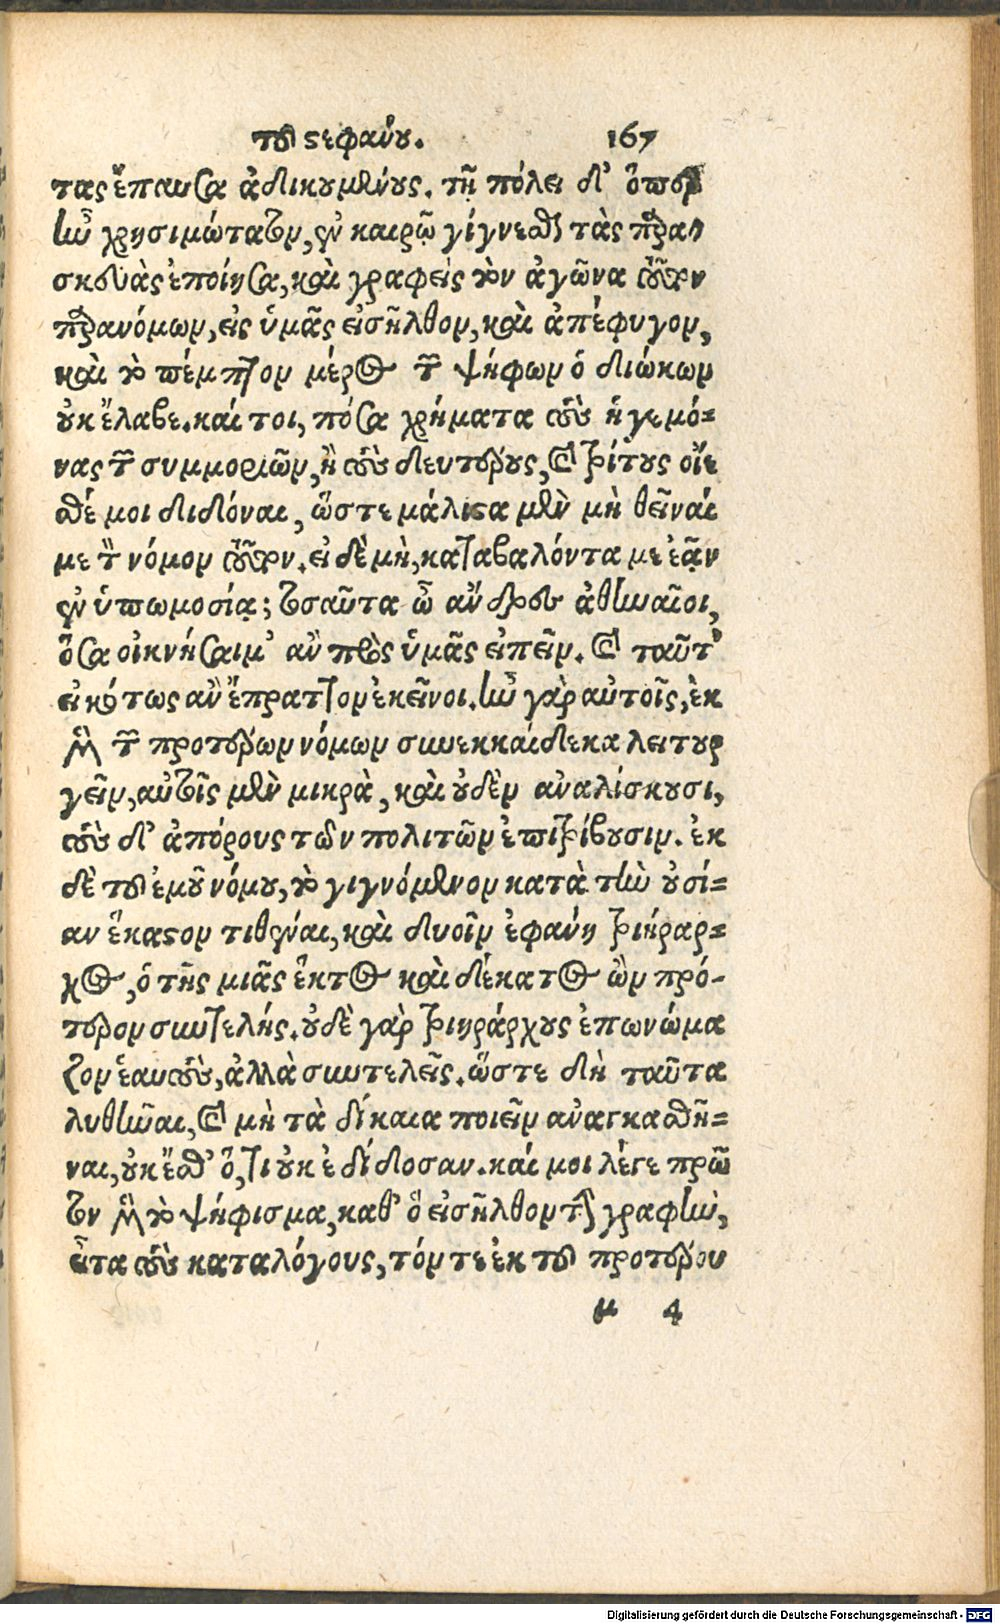 τοῦ στεφάνου. 167
τας ἔπαυσα ἀδικουμένους. τῇ πόλει δ' ὅπερ
ἦν χρησιμώτατον, ἐν καιρῷ γίγνεσθαι τὰς παρα-
σκευὰς ἐποίησα, καὶ γραφεὶς τὸν ἀγῶνα τοῦτον
παρανόμων, εἰς ὑμᾶς εἰσῆλθον, καὶ ἀπέφυγον,
καὶ τὸ πέμπτον μέρος τῶν ψήφων ὁ διώκων
οὐκ ἔλαβε. καί τοι, πόσα χρήματα τοὺς ἡγεμό-
νας τῶν συμμοριῶν, ἢ τοὺς δευτέρους, καὶ τρίτους οἴε
σθέ μοι διδόναι, ὥστε μάλιστα μὲν μὴ θεῖναί
με τὸν νόμον τοῦτον. εἰ δὲ μὴ, καταβαλόντα με ἐᾷν
ἐν ὑπωμοσίᾳ; τοσαῦτα ὦ ἄνδρες ἀθηναῖοι,
ὅσα ὀκνήσαιμ' ἂν πρὸς ὑμᾶς εἰπεῖν. καὶ ταῦτ'
εἰκότως ἂν ἔπραττον ἐκεῖνοι. ἦν γὰρ αὐτοῖς, ἐκ
μὲν τῶν προτέρων νόμων συνεκκαίδεκα λειτουρ
γεῖν, αὐτοῖς μὲν μικρὰ, καὶ οὐδὲν ἀναλίσκουσι,
τοὺς δ' ἀπόρους τῶν πολιτῶν ἐπιτρίβουσιν. ἐκ
δὲ τοῦ ἐμοῦ νόμου, τὸ γιγνόμενον κατὰ τὴν οὐσί-
αν ἕκαστον τιθέναι, καὶ δυοῖν ἐφάνη τριήραρ-
χος, ὁ τῆς μιᾶς ἕκτος καὶ δέκατος ὢν πρό-
τερον συντελής. οὐδὲ γὰρ τριηράρχους ἐπωνόμα
ζον ἑαυτοὺς, ἀλλὰ συντελεῖς. ὥστε δὴ ταῦτα
λυθῆναι, καὶ μὴ τὰ δίκαια ποιεῖν ἀναγκασθῆ-
ναι, οὐκ ἔσθ' ὅ, τι οὐκ ἐδίδοσαν. καί μοι λέγε πρῶ
τον μὲν τὸ ψήφισμα, καθ' ὃ εἰσῆλθον τὴν γραφὴν,
εἶτα τοὺς καταλόγους, τόν τε ἐκ τοῦ προτέρου
μ 4
Digitalisierung gefördert durch die Deutsche Forschungsgemeinschaft - DFG